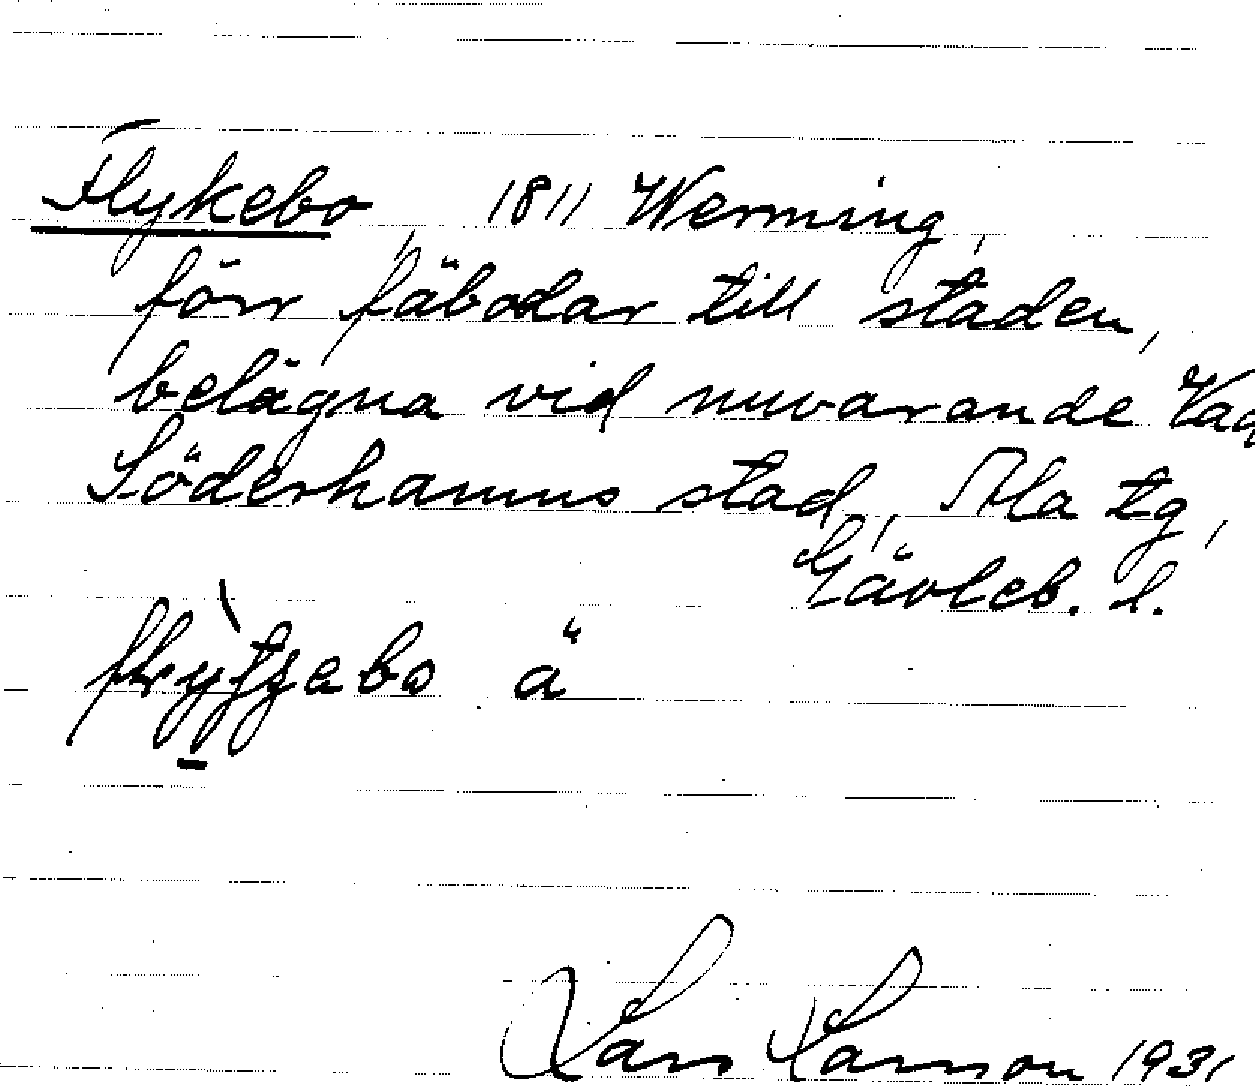 Flykebo 1811 Werming,
förr fäbodar till staden,
belägna vid nuvarande
Söderhamns stad, Ala tg,
Gävleb. l.
ä
Lars Larsson 1931